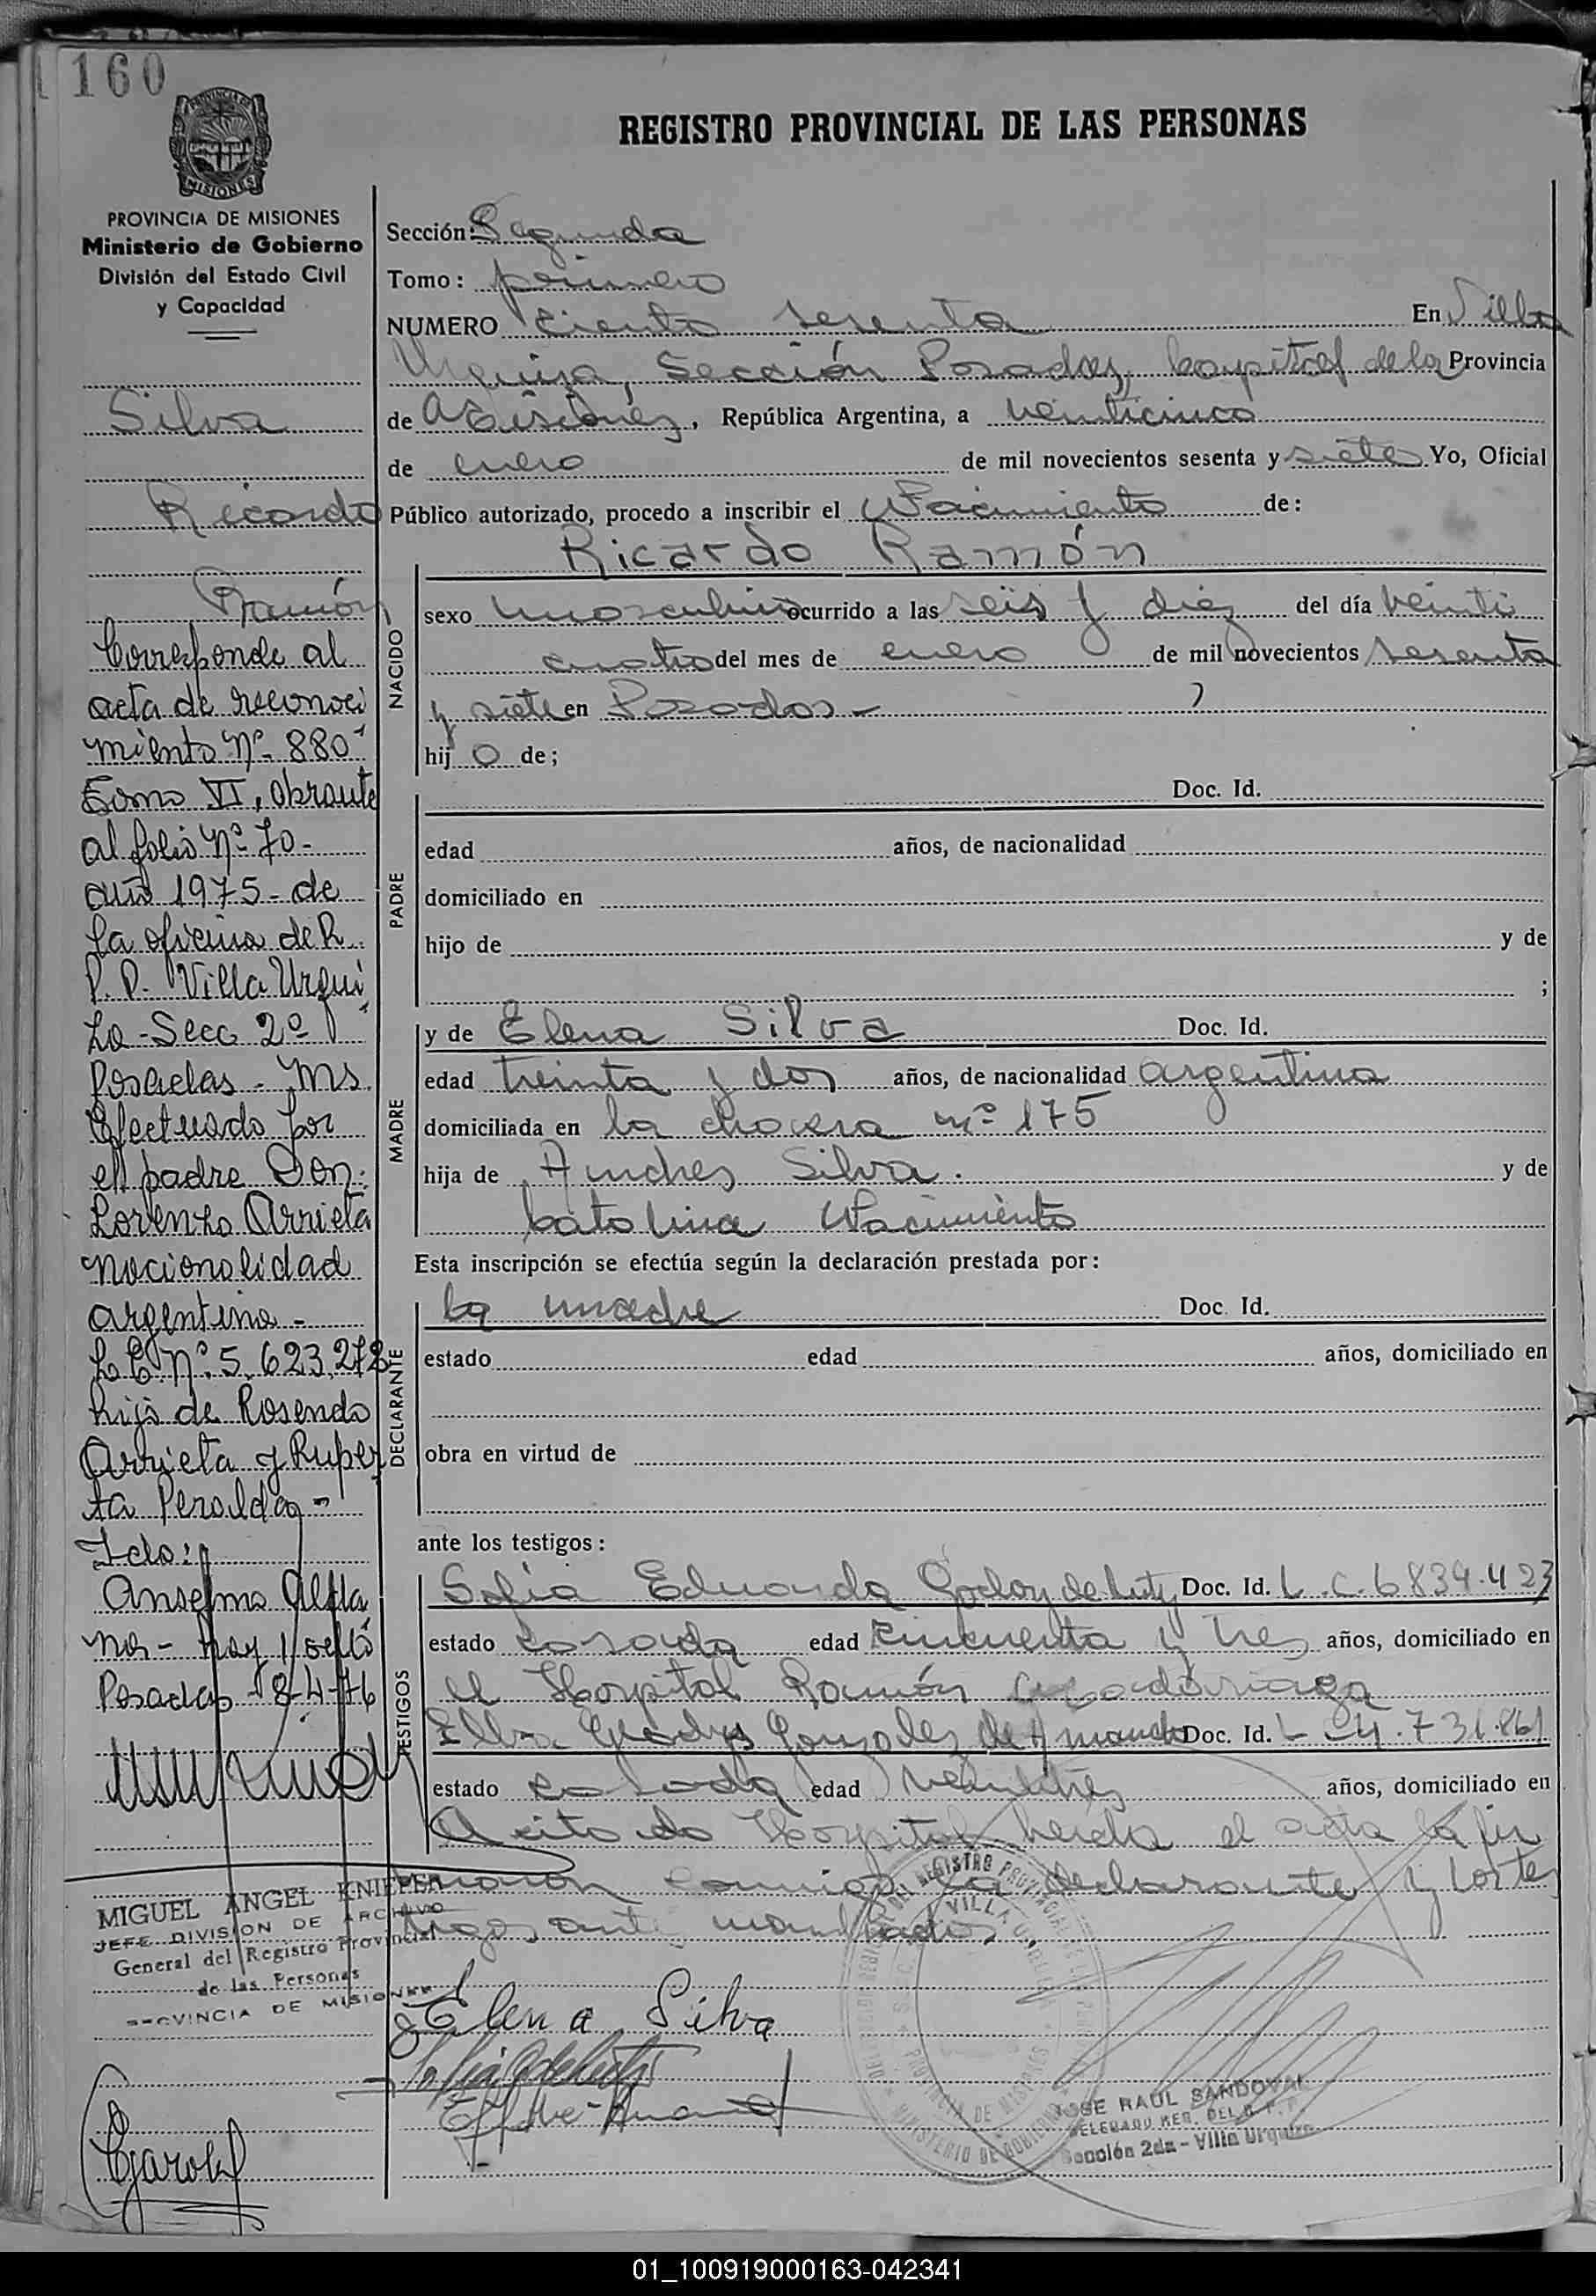 160
PROVINCIA DE MISIONES
MISIONES
PROVINCIA DE MISIONES
Ministerio de Gobierno
División del Estado Civil
y Capacidad
Silva
Ricardo
Ramón
Corresponde al
acta de reconoci
miento Nº 880
Tomo VI, Obrante
al folio Nº 70-
año 1975- de
la oficina de R.
P. P. Villa Urqui
za - Secc 2º
Posadas - Ms.
Efectuado por
el padre Don:
Lorenzo Arrieta
nacionalidad
argentina -
L E Nº 5.623.272
hijo de Rosendo
Arrieta y Ruper
ta Peralda -
Fdo:
Anselmo
Posadas 8-4-76
MIGUEL ANGEL KNIEPER
JEFE DIVISION DE ARCHIVO
General del Registro Provincial
de las Personas
PROVINCIA DE MISIONES
REGISTRO PROVINCIAL DE LAS PERSONAS
Sección: Segunda
Tomo: primero
NUMERO Ciento sesenta En Villa
Urquiza, Sección Posadas, Capital de la Provincia
de Misiones, República Argentina, a veinticinco
de enero de mil novecientos sesenta y siete Yo, Oficial
Público autorizado, procedo a inscribir el Nacimiento de:
Ricardo Ramón
NACIDO
sexo masculino ocurrido a las seis y diez del día veinti
cuatro del mes de enero de mil novecientos sesenta
y siete en Posadas -
hij o de;
PADRE
Doc. Id.
edad años, de nacionalidad
domiciliado en
hijo de y de
;
MADRE
y de Elena Silva Doc. Id.
edad treinta y dos años, de nacionalidad argentina
domiciliada en la chacra nº 175
hija de Andres Silva. y de
Catalina Nacimiento
Esta inscripción se efectúa según la declaración prestada por:
DECLARANTE
la madre Doc. Id.
estado edad años, domiciliado en
obra en virtud de
ante los testigos:
TESTIGOS
Sofia Eduarda Godoy de Doc. Id. L.C. 6839.423
estado casada edad Cincuenta y tres años, domiciliado en
el Hospital Ramón Madariaga
Elba Gladys Gonzalez de Doc. Id. L 731.861
estado casada edad veintitres años, domiciliado en
el citado Hospital leida el acta la fir
maron conmigo la declarante y los tes
tigos ante
Elena Silva
JOSE RAUL SANDOVAL
Sección 2da - Villa Urquiza
01_100919000163-042341